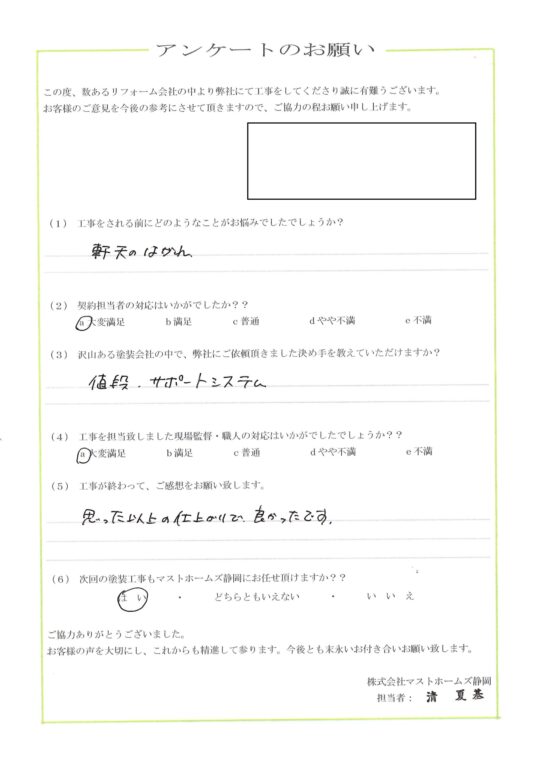 アンケートのお願い
この度、数あるリフォーム会社の中より弊社にて工事をしてくださり誠に有難うございます。
お客様のご意見を今後の参考にさせて頂きますので、ご協力の程お願い申し上げます。
(1) 工事をされる前にどのようなことがお悩みでしたでしょうか?
軒天のはがれ
(2) 契約担当者の対応はいかがでしたか??
a大変満足 b満足 c普通 dやや不満 e不満
(3) 沢山ある塗装会社の中で、弊社にご依頼頂きました決め手を教えていただけますか?
値段、サポートシステム
(4) 工事を担当致しました現場監督・職人の対応はいかがでしたでしょうか??
a大変満足 b満足 c普通 dやや不満 e不満
(5) 工事が終わって、ご感想をお願い致します。
思った以上の仕上がりで、良かったです。
(6) 次回の塗装工事もマストホームズ静岡にお任せ頂けますか??
はい ・ どちらともいえない ・ いいえ
ご協力ありがとうございました。
お客様の声を大切にし、これからも精進して参ります。今後とも末永いお付き合いお願い致します。
株式会社マストホームズ静岡
担当者: 清 夏基